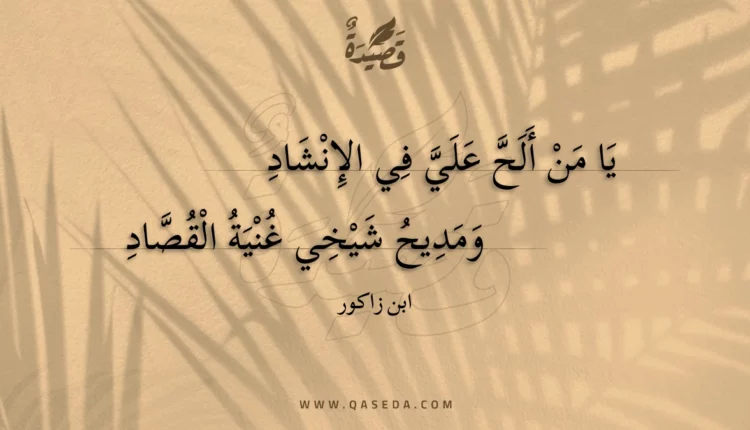 قَصِيْدَةٌ
يَا مَنْ أَلَحَّ عَلَيَّ فِي الإِنْشَادِ
وَمَدِيحُ شَيْخِي غُنْيَةُ الْقُصَّادِ
ابن زاكور
WWW.QASEDA.COM